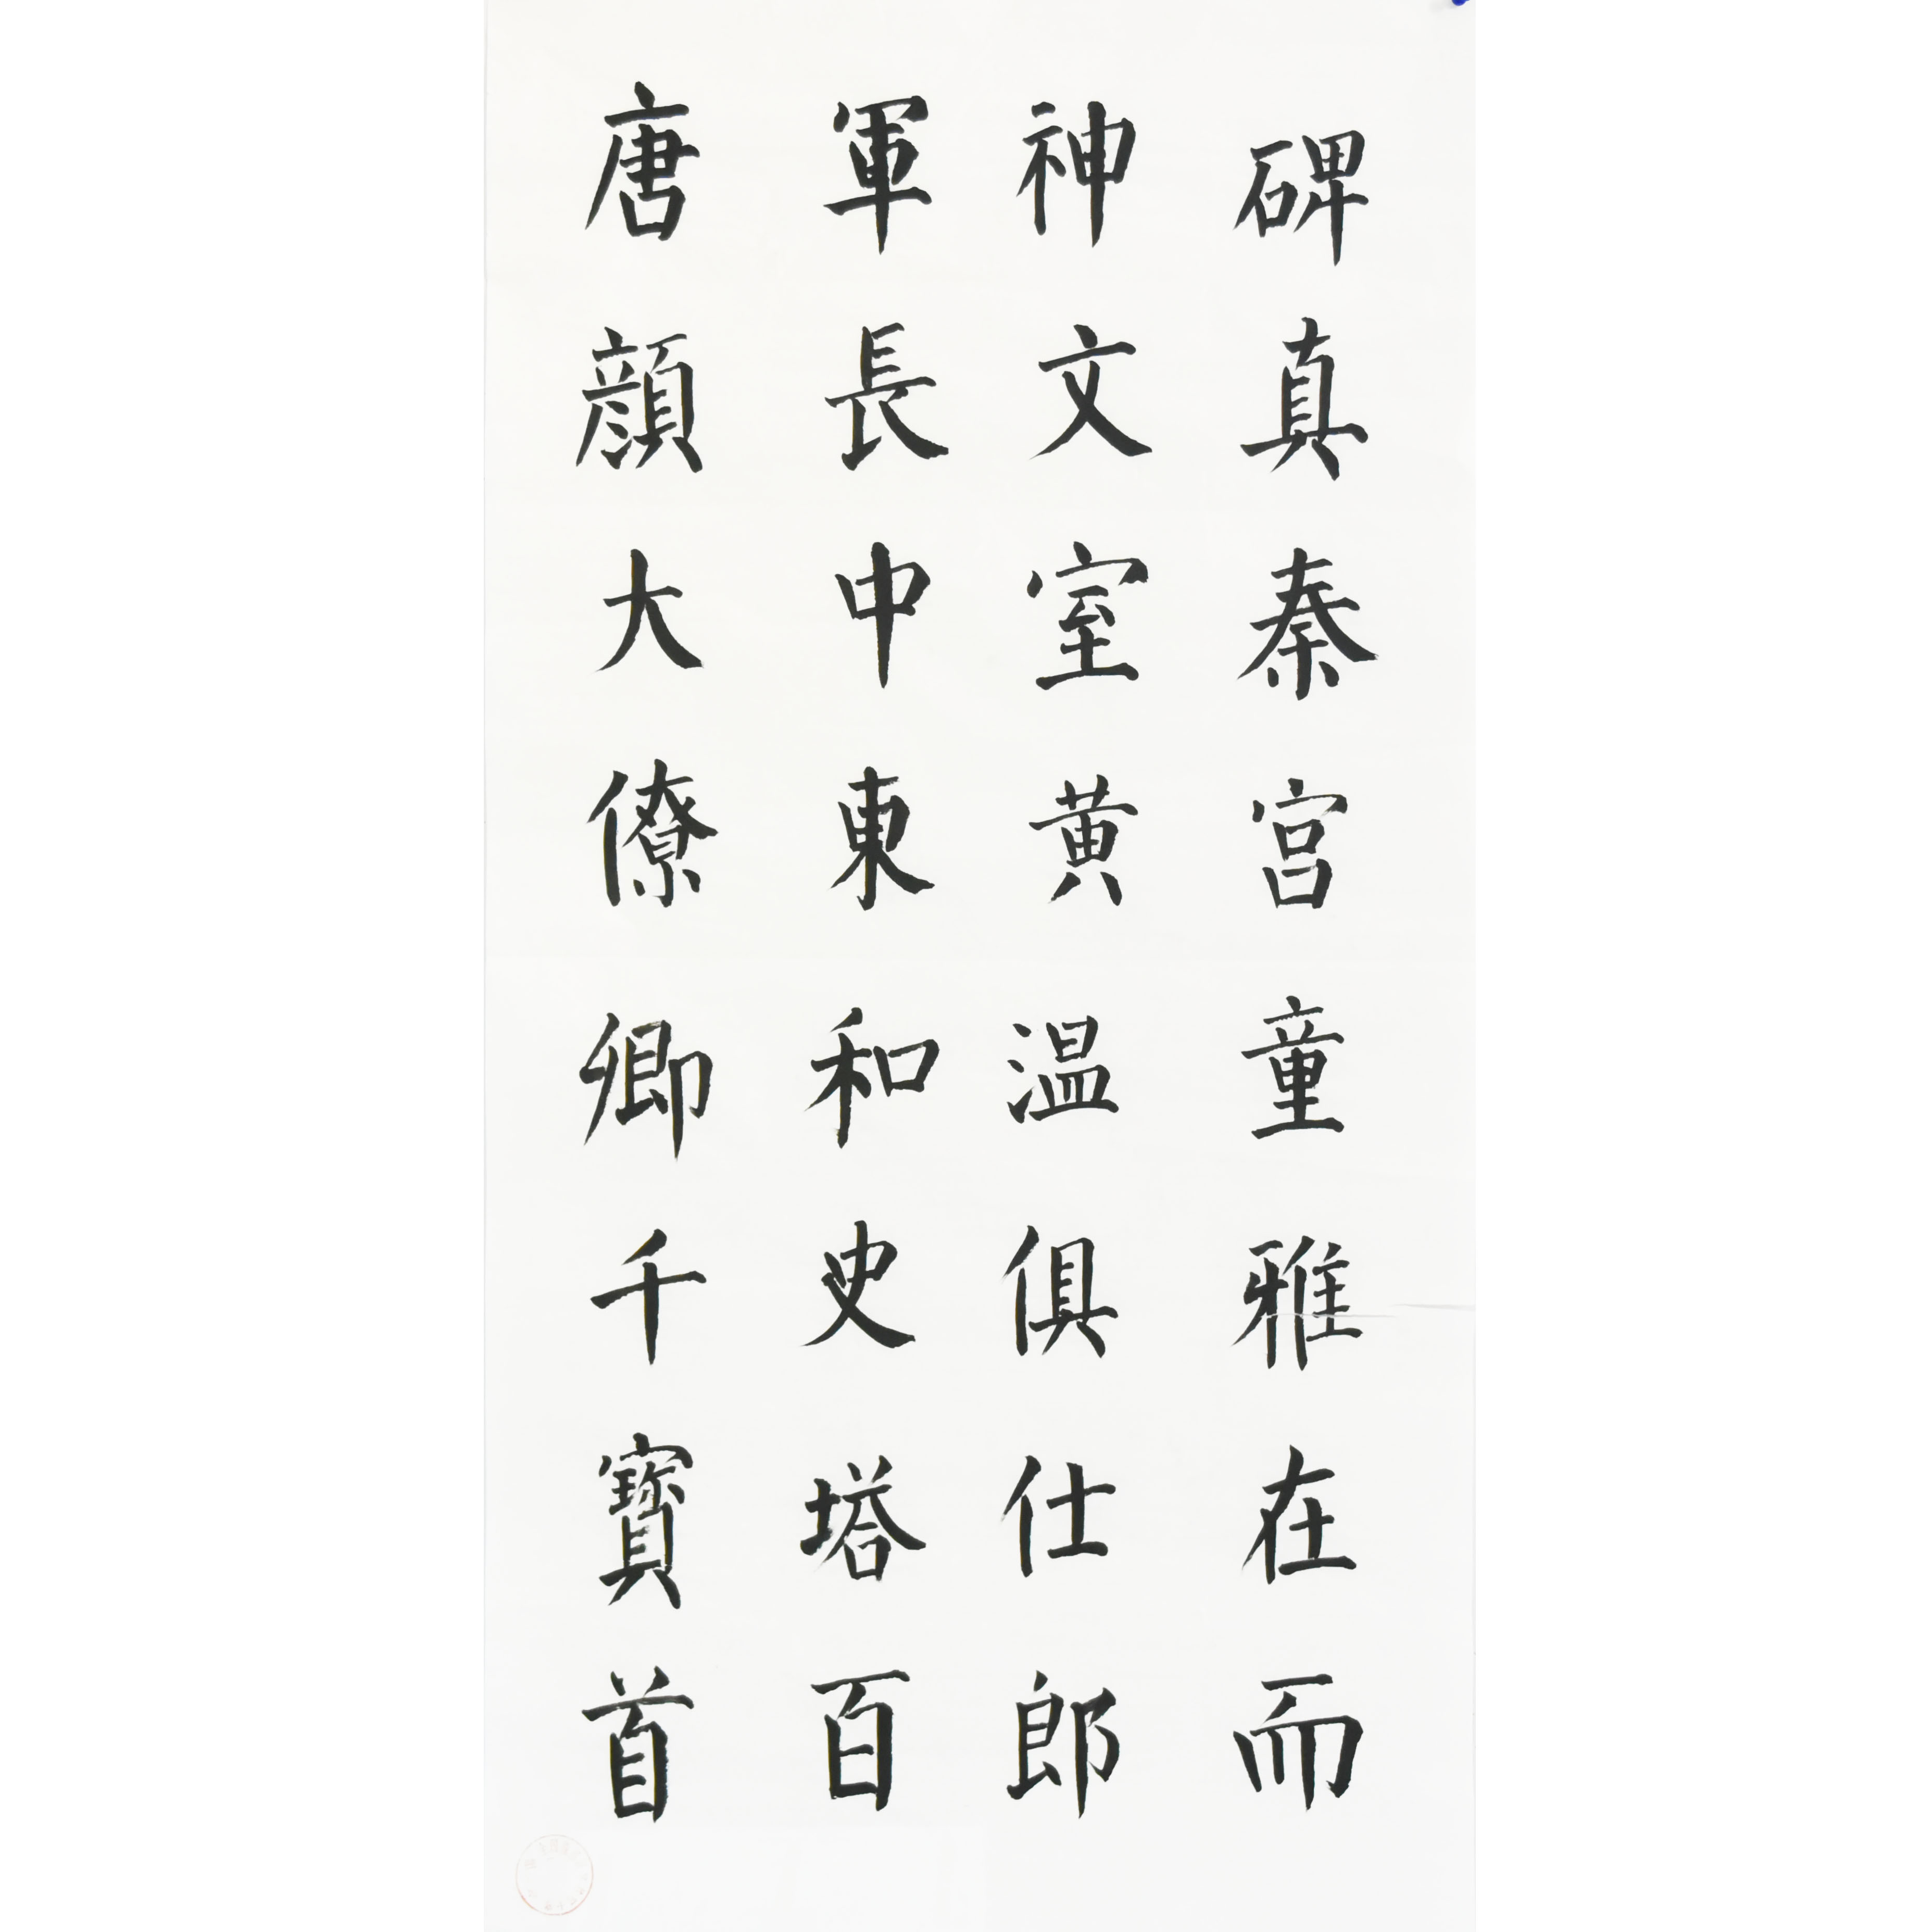 碑真秦宫童雅在而
神文室黄温俱仕郎
軍長中東和史塔百
唐顔大僚卿千寳首